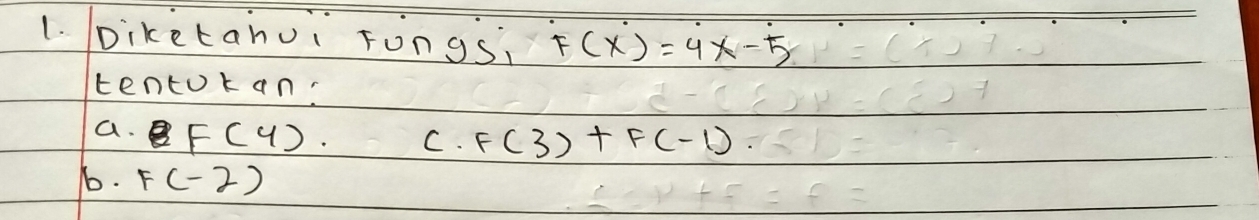 1. Diketahui Fungsi F(x)=4x-5
tentukan:
a. F(4). C. F(3) + F(-1).
b. F(-2)